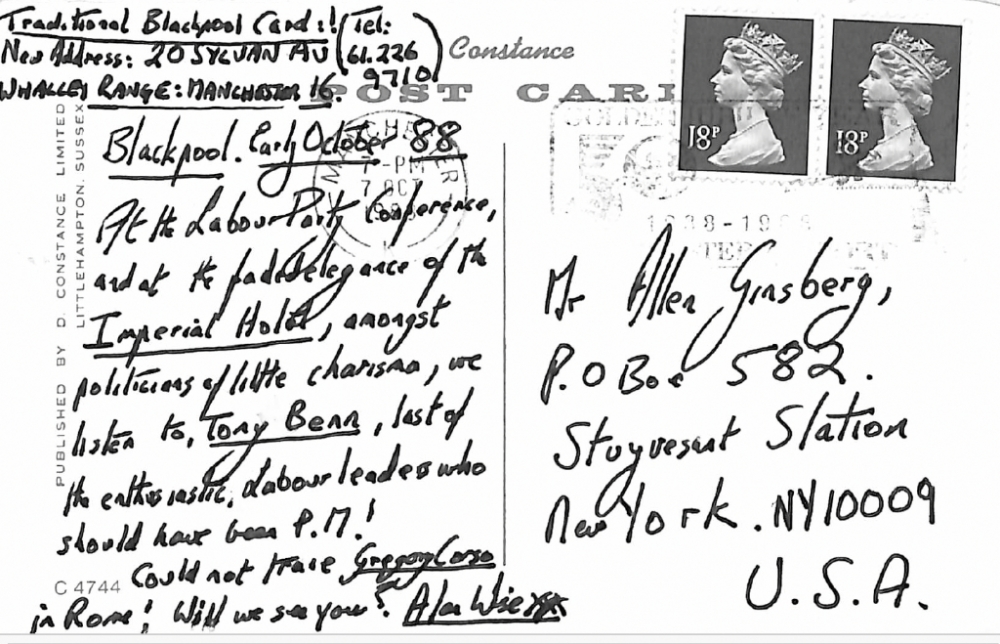 Traditional Blackpool Card:! (Tel:
New Address: 20 SYLVAN AV 61.226
WHALLEY RANGE: MANCHESTER 16. 9710)
Constance
POST CARD
Blackpool. Early October 88
At the Labour Party Conference,
and at the faded elegance of the
Imperial Hotel, amongst
politicians of little charisma, we
listen to, Tony Benn, last of
the enthusiastic, Labour leaders who
should have been P.M!
Could not trace Gregory Corso
in Rome! Will we see you? Alan
C 4744
PUBLISHED BY D. CONSTANCE LIMITED
LITTLEHAMPTON. SUSSEX
MANCHESTER
7-PM
7 OCT
18P
18P
Mr Allen Ginsberg,
P.O Box 582.
Stuyvesant Station
New York. NY10009
U.S.A.